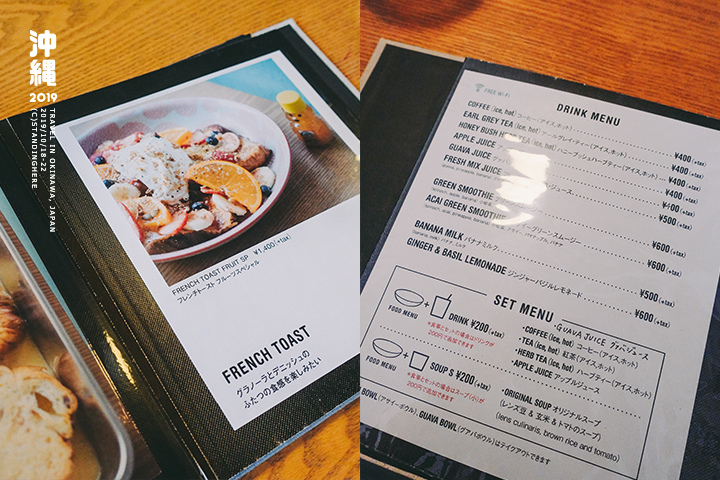 沖縄
2019
TRAVEL IN OKINAWA, JAPAN
2019/10/18-22
(C)STANDINGHERE
FRENCH TOAST FRUIT SP ¥1,400(+tax)
フレンチトースト フルーツスペシャル
FRENCH TOAST
グラノーラとデニッシュの
ふたつの食感を楽しみたい
FREE Wi-Fi
DRINK MENU
COFFEE (ice, hot) コーヒー(アイス、ホット) ¥400(+tax)
EARL GREY TEA (ice, hot) アールグレイティー(アイス、ホット) ¥400(+tax)
HONEY BUSH TEA (ice, hot) ハニーブッシュハーブティー(アイス、ホット) ¥400(+tax)
APPLE JUICE ¥400(+tax)
GUAVA JUICE ¥400(+tax)
FRESH MIX JUICE ジュース ¥500(+tax)
GREEN SMOOTHIE グリーンスムージー ¥600(+tax)
ACAI GREEN SMOOTHIE グリーンスムージー ¥600(+tax)
BANANA MILK バナナミルク ¥500(+tax)
(banana, milk) バナナ、ミルク
GINGER & BASIL LEMONADE ジンジャーバジルレモネード ¥600(+tax)
SET MENU
FOOD MENU + DRINK ¥200(+tax)
※食事とセットの場合はドリンクが
200円で追加できます
・GUAVA JUICE グァバジュース
・COFFEE (ice, hot) コーヒー(アイス、ホット)
・TEA (ice, hot) 紅茶(アイス、ホット)
・HERB TEA (ice, hot) ハーブティー(アイス、ホット)
・APPLE JUICE アップルジュース
FOOD MENU + SOUP S ¥200(+tax)
※食事とセットの場合はスープ(小)が
200円で追加できます
・ORIGINAL SOUP オリジナルスープ
(レンズ豆 & 玄米 & トマトのスープ)
(lens culinaris, brown rice and tomato)
BOWL(アサイーボウル)、GUAVA BOWL(グァバボウル)はテイクアウトできます